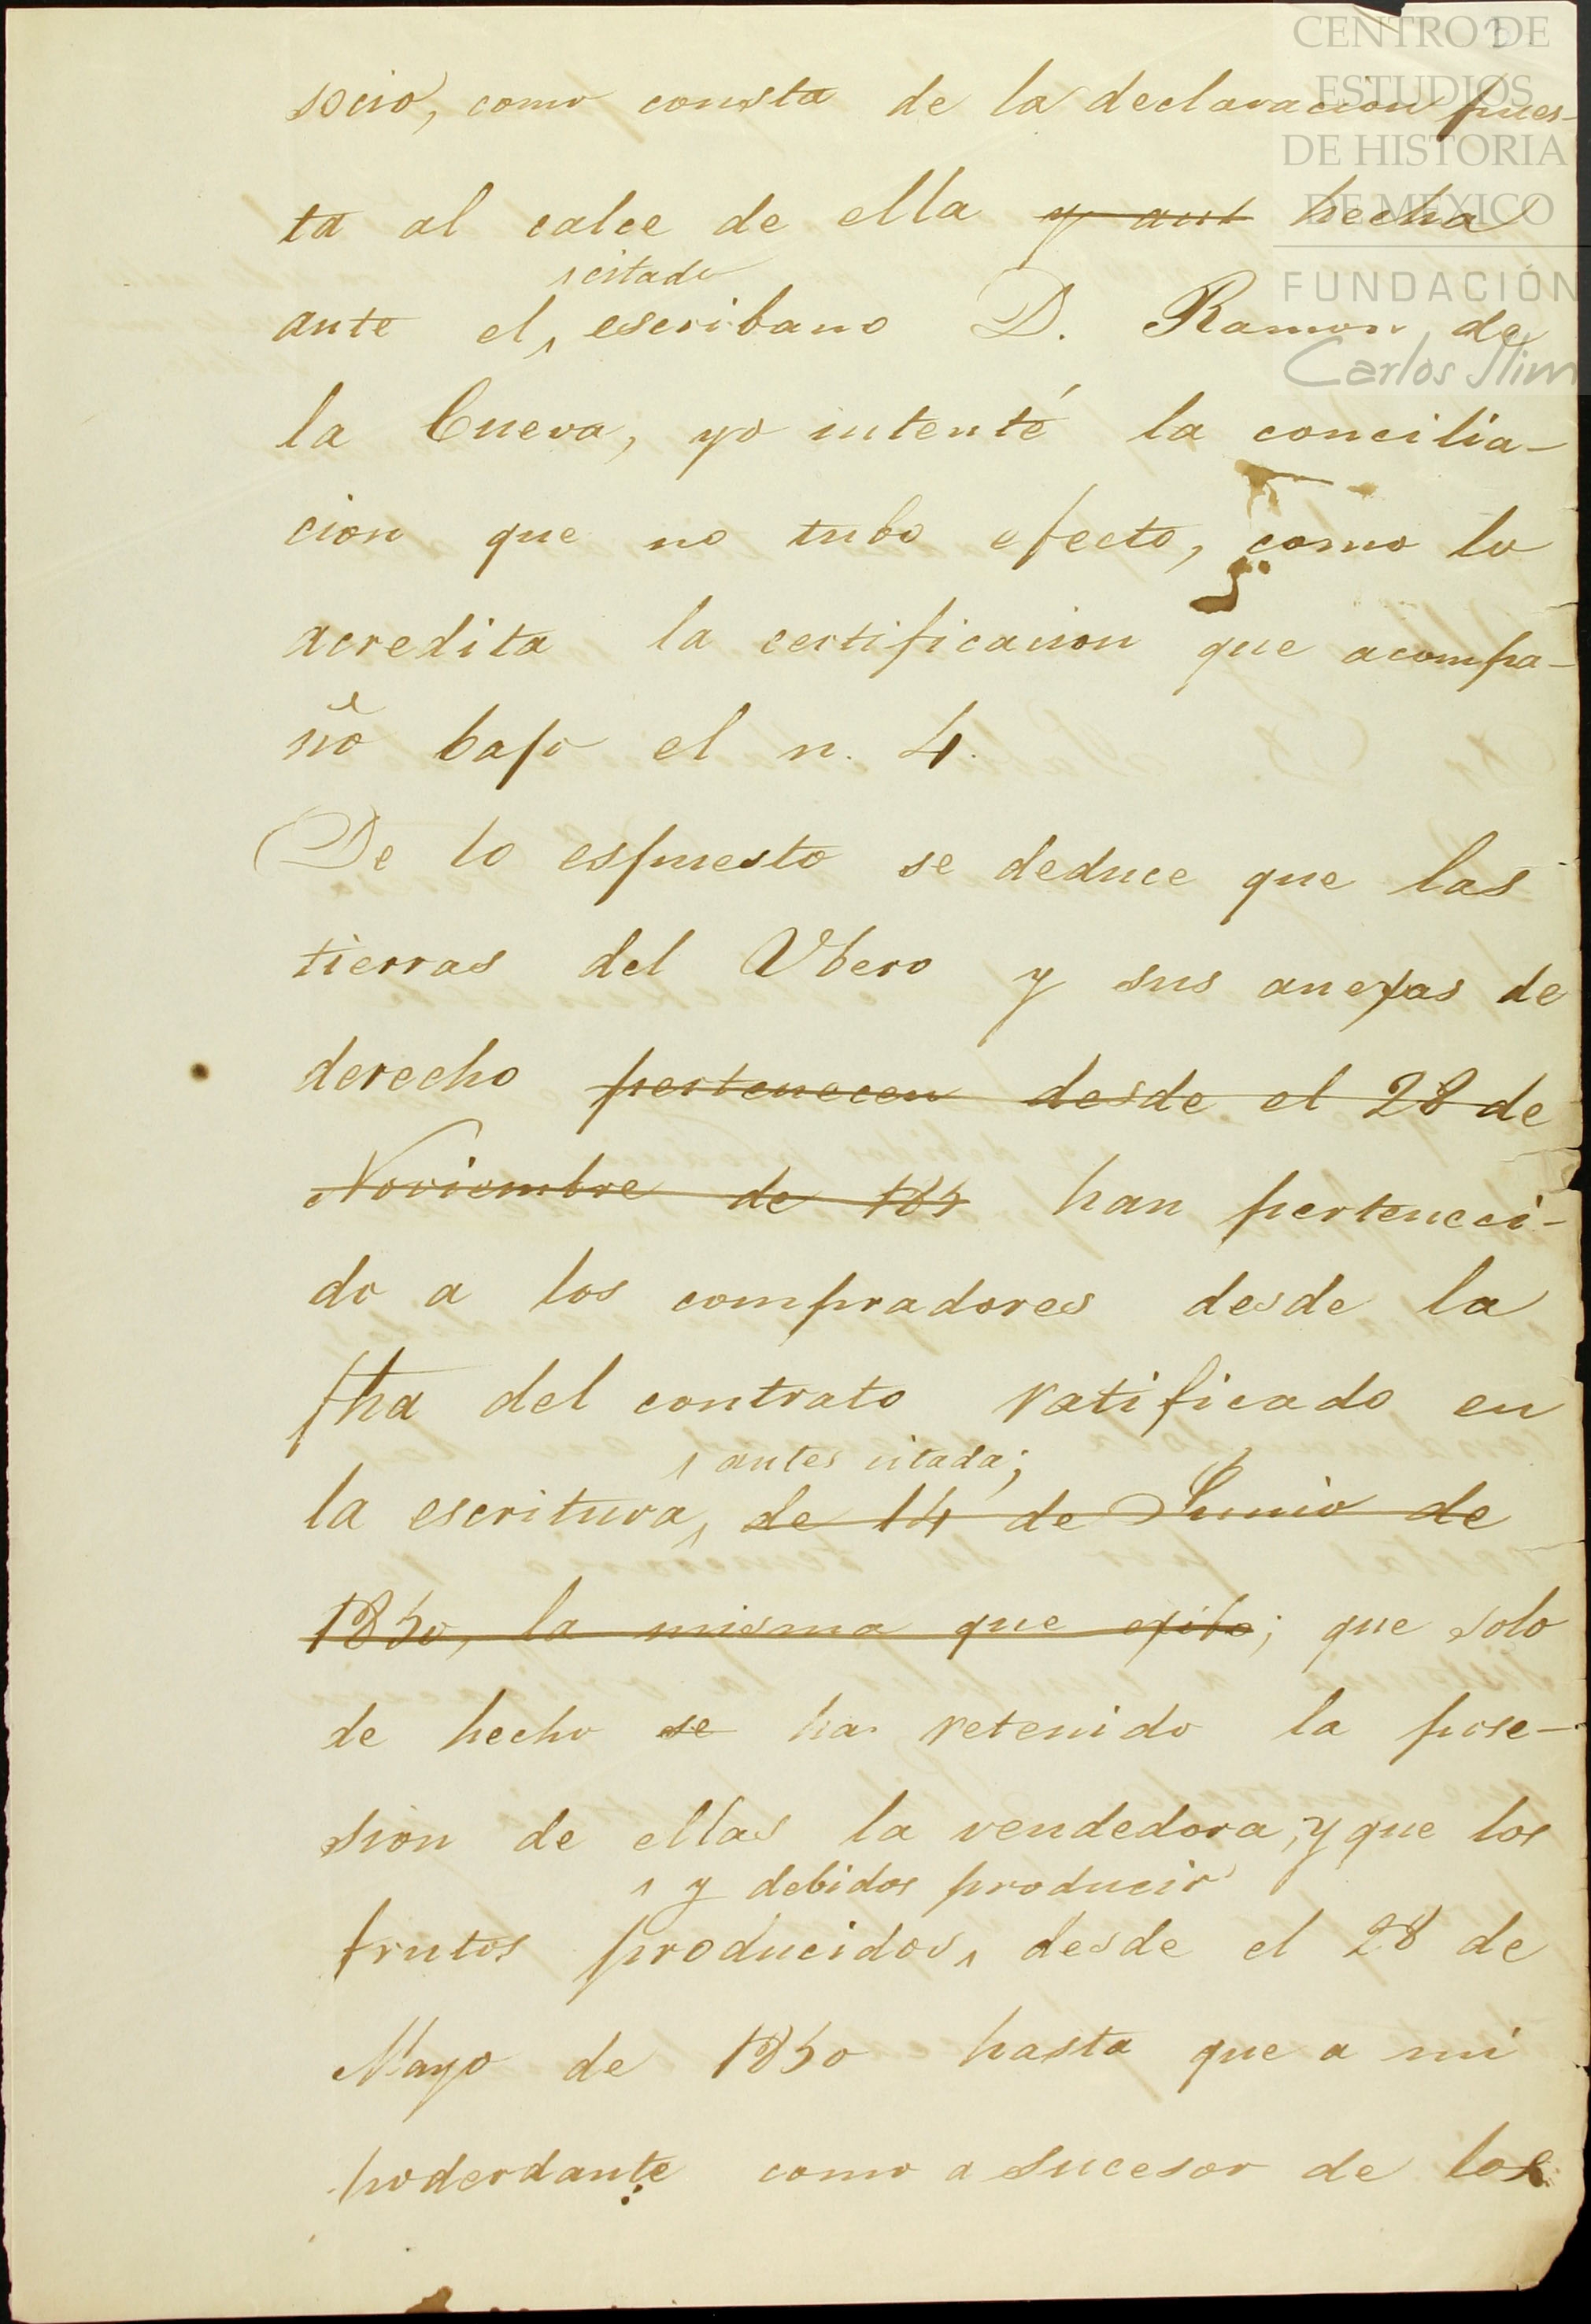 CENTRO DE
ESTUDIOS
DE HISTORIA
DE MÉXICO
FUNDACIÓN
Carlos Slim
socio, como consta de la declaracion pues-
ta al calce de ella y ant hecha
citado
ante el, escribano D. Ramon de
la Cueva, yo intenté la concilia-
cion que no tubo efecto, como lo
acredita la certificacion que acompa-
ño bajo el n. 4.
De lo espuesto se deduce que las
tierras del Ubero y sus anexas de
derecho pertenecen desde el 28 de
Noviembre de 185 han perteneci-
do a los compradores desde la
fha del contrato ratificado en
antes citada;
la escritura, de 14 de Junio de
1850, la misma que exibo; que solo
de hecho se ha retenido la pose-
sion de ellas la vendedora, y que los
y debidos producir
frutos producidos, desde el 28 de
Mayo de 1850 hasta que a mi
poderdante como a sucesor de los